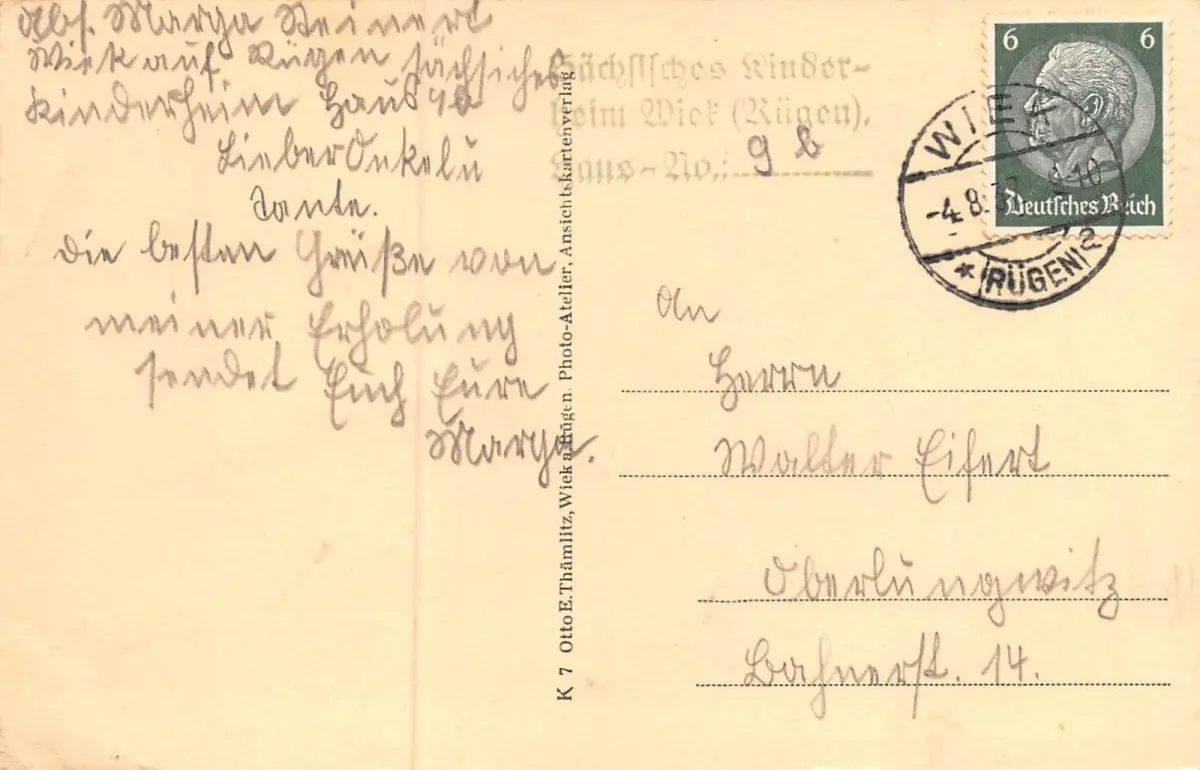 Abs. Marga Steinert
Wiek auf Rügen sächsiches
Kinderheim Haus 9b
Lieber Onkel u
Tante.
Die besten Grüße von
meiner Erholung
sendet Euch Eure
Marga.
Sächsisches Kinder-
heim Wiek (Rügen).
Haus-No.: 9 b
K 7 Otto E. Thämlitz, Wiek a. Rügen. Photo-Atelier, Ansichtskartenverlag
6 6
Deutsches Reich
WIEK
-4.8.3
* (RÜGEN) a
An
Herrn
Walter Eifert
Oberlungwitz
Bahnerst. 14.